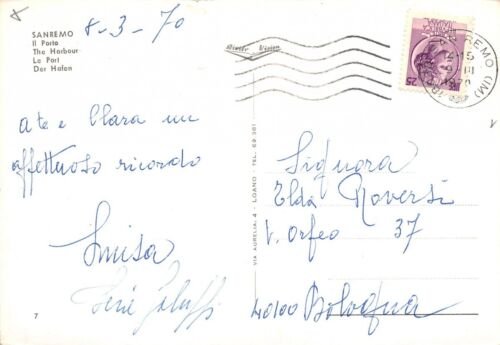 8-3-70
SANREMO
Il Porto
The Harbour
Le Port
Der Hafen
A te e Clara un
affettuoso ricordo
Luisa
7
VIA AURELIA, 4 - LOANO - TEL. 69 381
25
REMO (IM)
Signora
Elda Roversi
V. Orfeo 37
40100 Bologna